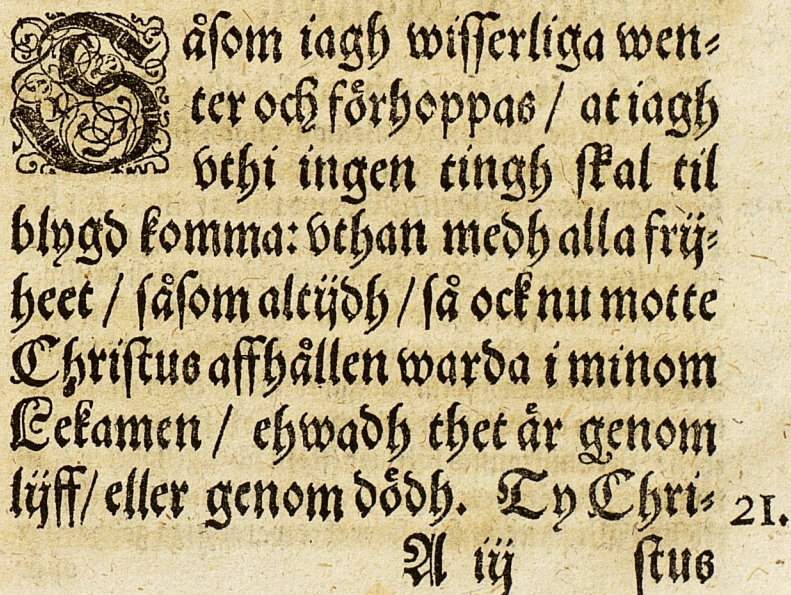 Såsom iagh wisserliga wen⸗
ter och förhoppas / at iagh
vthi ingen tingh skal til
blygd komma: vthan medh alla frij⸗
heet / såsom altijdh / så ock nu motte
Christus affhållen warda i minom
Lekamen / ehwadh thet är genom
lijff / eller genom dödh. Ty Chri⸗ 21.
A iij stus